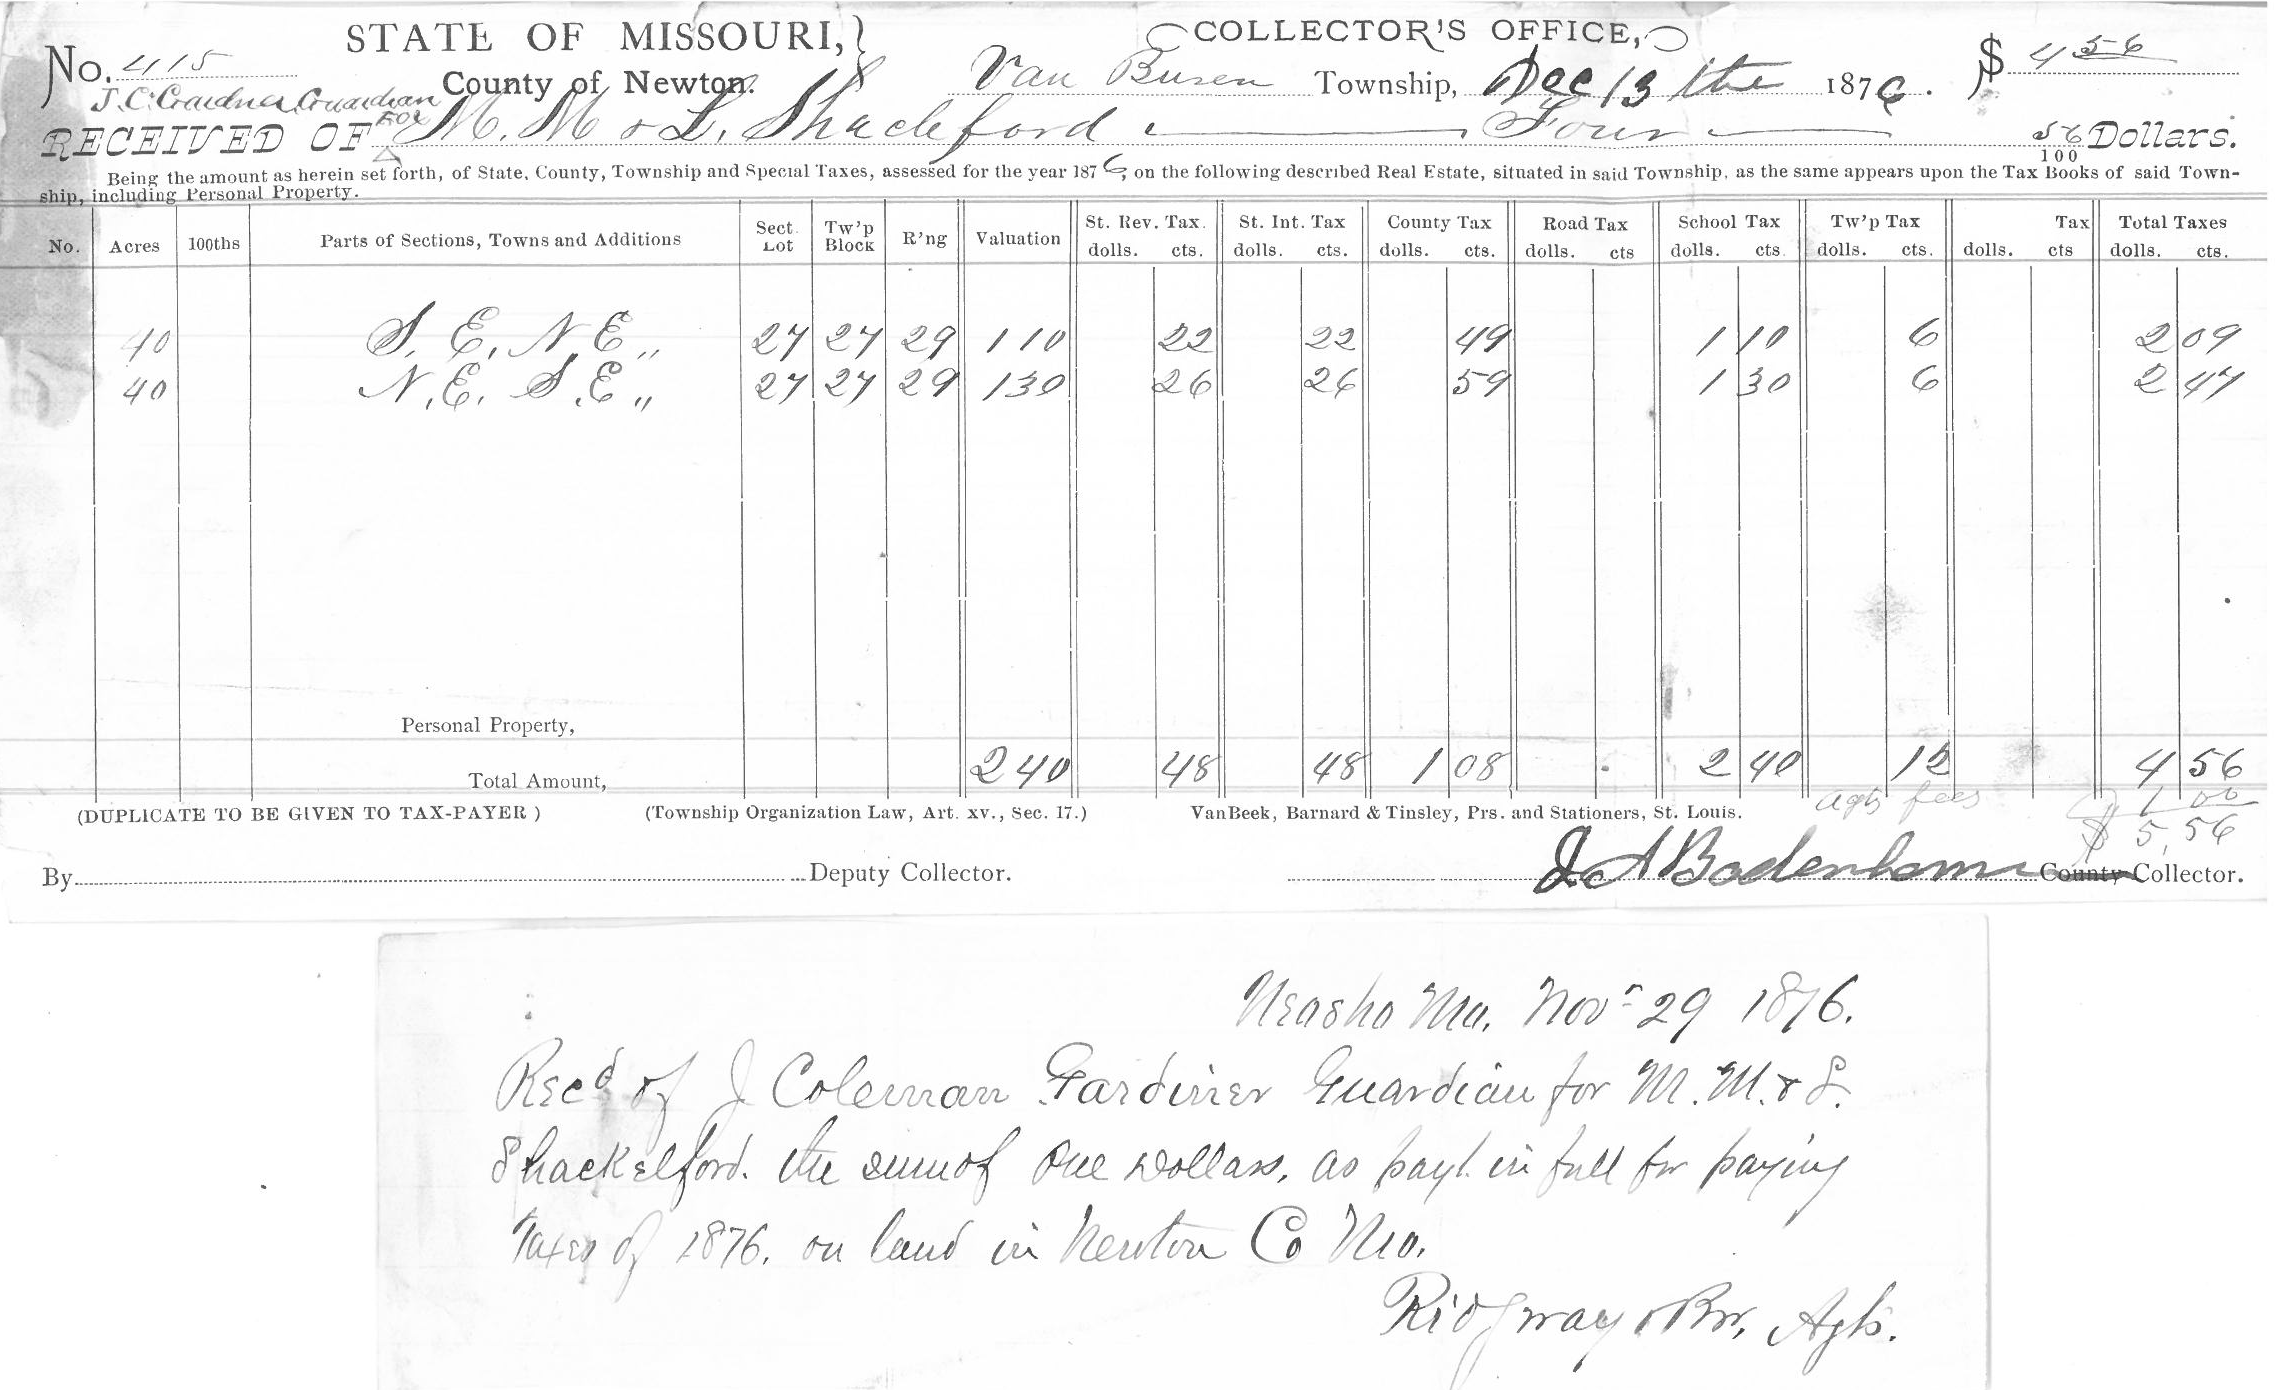 No. 415 STATE OF MISSOURI, } COLLECTOR'S OFFICE, $ 4 56
County of Newton. Van Buren Township, Dec 13 the 1876.
J. C. Gardner, Guardian
RECEIVED OF For M. M & L. Shackford Four 56/100 Dollars.
Being the amount as herein set forth, of State, County, Township and Special Taxes, assessed for the year 1876, on the following described Real Estate, situated in said Township, as the same appears upon the Tax Books of said Town-
ship, including Personal Property.
No. Acres 100ths Parts of Sections, Towns and Additions Sect Lot Tw'p Block R'ng Valuation St. Rev. Tax. dolls. cts. St. Int. Tax dolls. cts. County Tax dolls. cts. Road Tax dolls. cts School Tax dolls. cts Tw'p Tax dolls. cts. Tax dolls. cts Total Taxes dolls. cts.
40 S. E. N E " 27 27 29 110 22 22 49 1 10 6 2 09
40 N. E. S. E " 27 27 29 130 26 26 59 1 30 6 2 47
Personal Property,
Total Amount, 240 48 48 1 08 2 40 12 4 56
(DUPLICATE TO BE GIVEN TO TAX-PAYER) (Township Organization Law, Art. xv., Sec. 17.) VanBeek, Barnard & Tinsley, Prs. and Stationers, St. Louis. Agts fees 1 00
$ 5,56
By Deputy Collector. J A Bodenhamer County Collector.
Neosho Mo. Nov 29 1876.
Recd of J Coleman Gardiner Guardian for M. M. & L.
Shackelford. the sum of One Dollars, as payt. in full for paying
Taxes of 1876. on land in Newton Co Mo.
Ridgway & Bro, Agts.